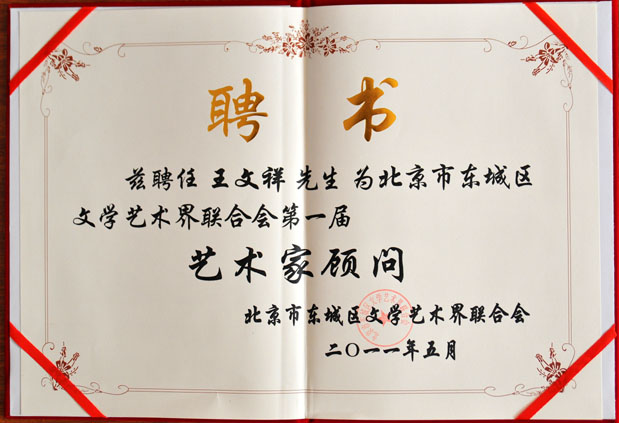 聘 书
兹聘任 王文祥 先生 为北京市东城区
文学艺术界联合会第一届
艺术家顾问
北京市东城区文学艺术界联合会
二〇一一年五月